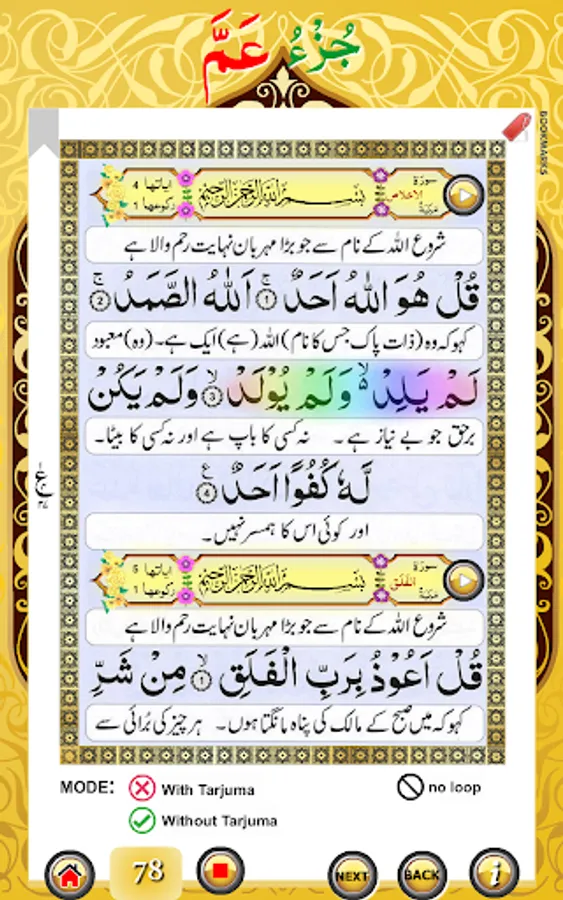 جُزْءُ عَمَّ
BOOKMARKS
سورة الاخلاص مكية بِسْمِ اللهِ الرَّحْمٰنِ الرَّحِيْمِ اياتها 4 ركوعها 1
شروع اللہ کے نام سے جو بڑا مہربان نہایت رحم والا ہے
قُلْ هُوَ اللّٰهُ اَحَدٌ ۚ ١ اَللّٰهُ الصَّمَدُ ۚ ٢
کہو کہ وہ (ذات پاک جس کا نام) اللہ (ہے) ایک ہے۔ (وہ) معبود
لَمْ يَلِدْ ۙ۬ وَلَمْ يُوْلَدْ ۙ ٣ وَلَمْ يَكُنْ
برحق جو بے نیاز ہے۔ نہ کسی کا باپ ہے اور نہ کسی کا بیٹا۔
لَّهٗ كُفُوًا اَحَدٌ ۧ ٤
اور کوئی اس کا ہمسر نہیں۔
سورة الفلق مكية بِسْمِ اللهِ الرَّحْمٰنِ الرَّحِيْمِ اياتها 5 ركوعها 1
شروع اللہ کے نام سے جو بڑا مہربان نہایت رحم والا ہے
قُلْ اَعُوْذُ بِرَبِّ الْفَلَقِ ۙ ١ مِنْ شَرِّ
کہو کہ میں صبح کے مالک کی پناہ مانگتا ہوں۔ ہر چیز کی بُرائی سے
MODE: With Tarjuma no loop
Without Tarjuma
78 NEXT BACK i